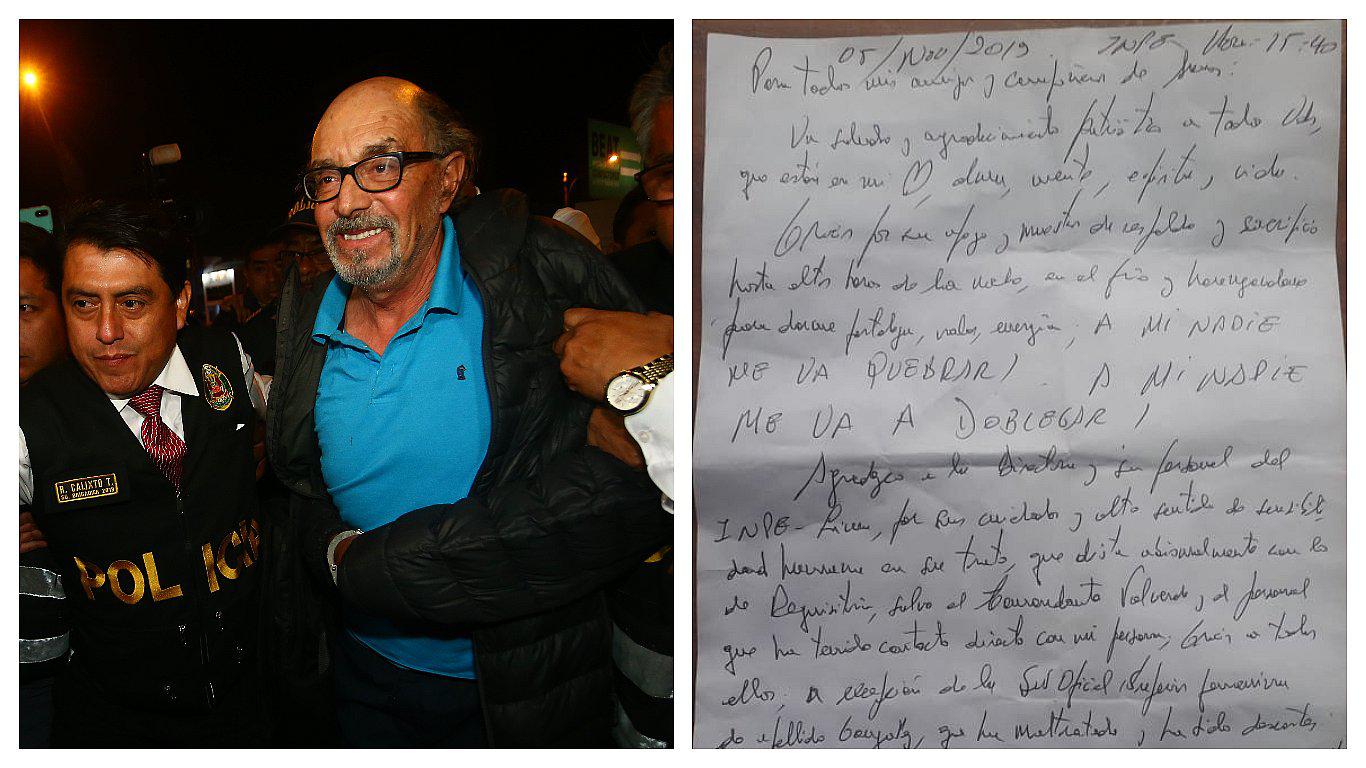 BEAT
R. CALIXTO T.
POLICIA
05/Nov/2019. INPE Hora: 15:40
Para todos mis amigos y compañeros de
Un saludo y agradecimiento a todo Uds,
que están en mi alma, mente, espíritu, vida.
Gracias por su apoyo y muestra de respaldo y sacrificio
hasta altas horas de la noche, en el frío y
para darme fortaleza, valor, energía; A MI NADIE
ME VA QUEBRAR! A MI NADIE
ME VA A DOBLEGAR!
Agradezco a la Directora y su personal del
INPE- Lima, por sus cuidados y alto sentido de
en su trato, que dista abismalmente con los
de Requisitoria, salvo el Comandante Valverde y el personal
que ha tenido contacto directo con mi persona, Gracias a todos
ellos; a excepción de la Sub Oficial femenina
de apellido que ha maltratado y ha sido